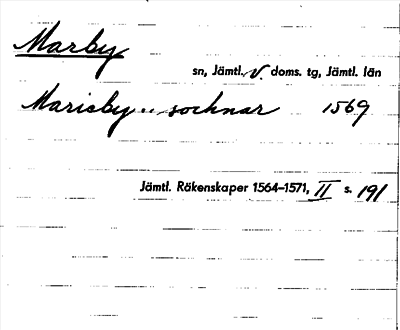 Marby
sn, Jämtl. V doms. tg, Jämtl. län
Marieby .. sochnar 1569
Jämtl. Räkenskaper 1564–1571, II s. 191